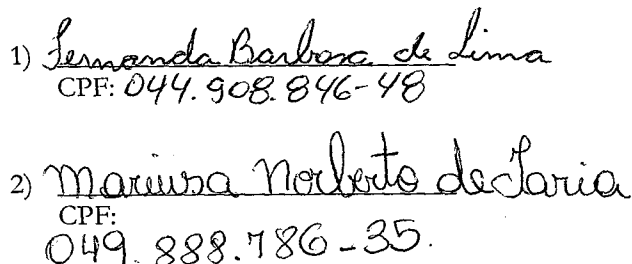 1) Fernanda Barbosa de Lima
CPF: 044.908.846-48
2) Mariusa Norberto de Faria
CPF:
049.888.786-35.